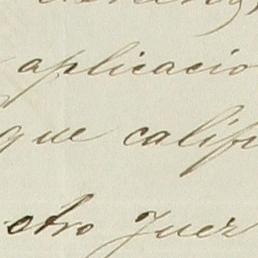 aplicacio
que calif
otro Juez